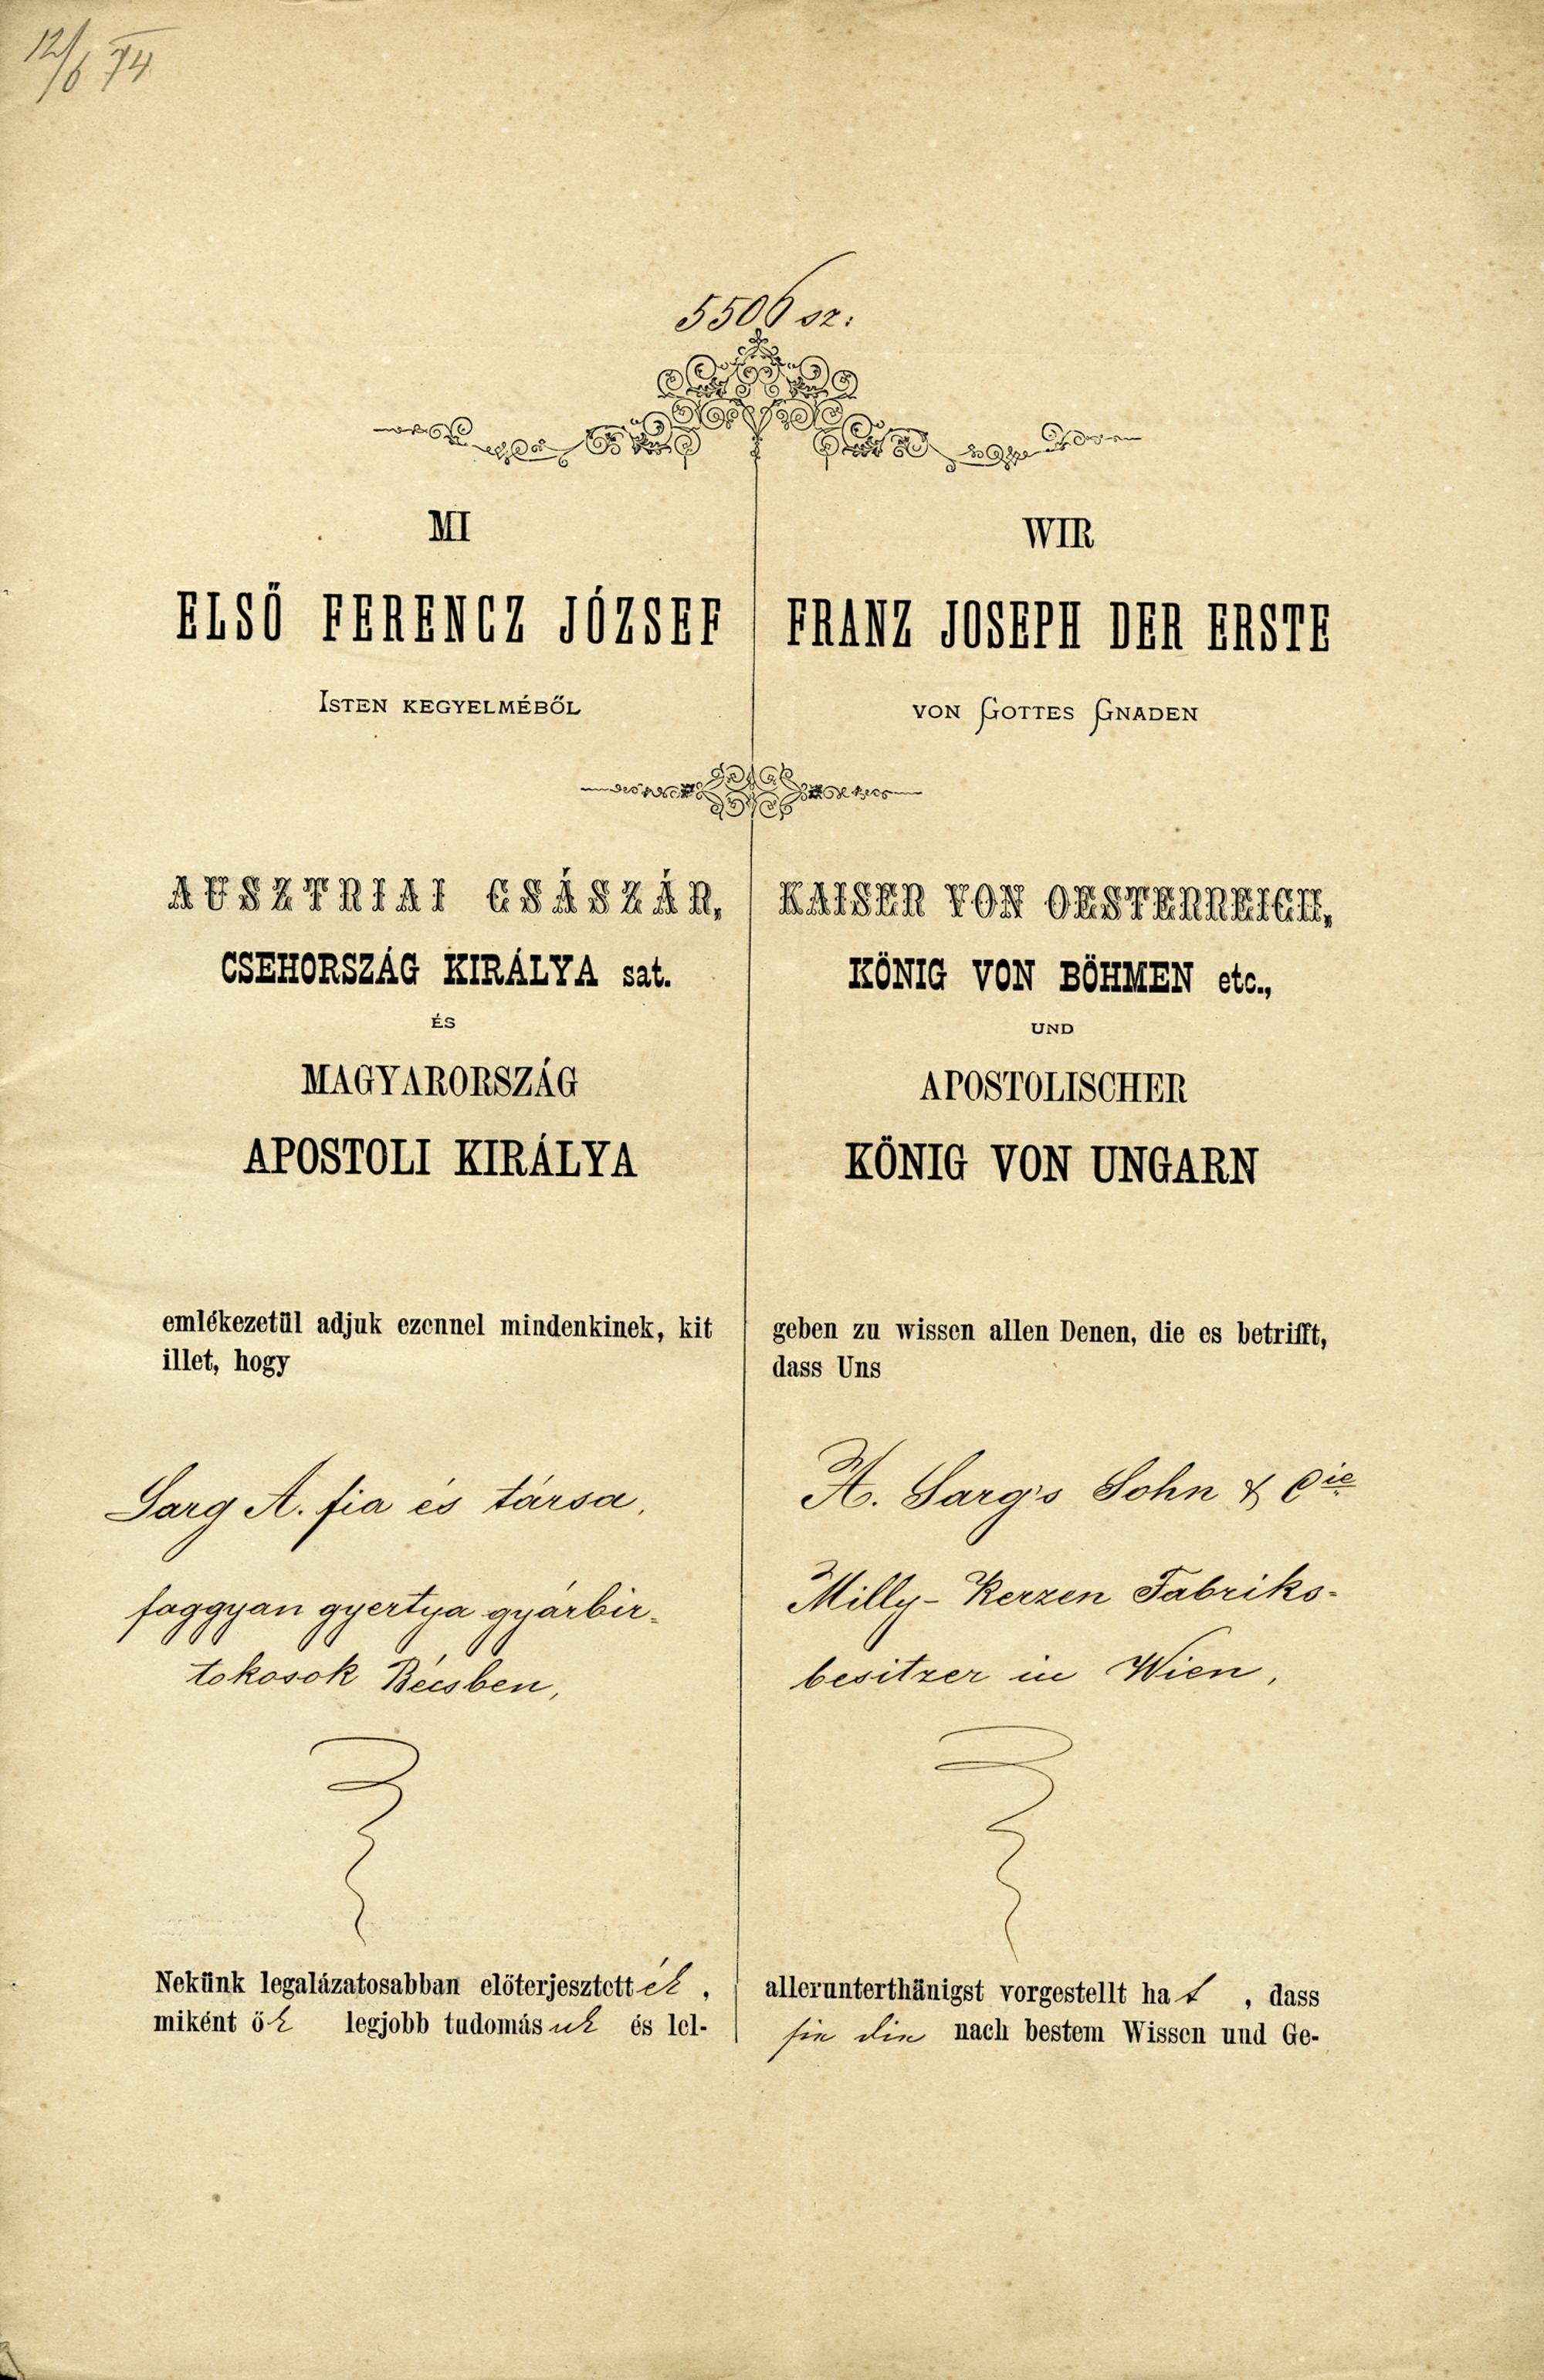 12/6 74
5506 sz:
MI
ELSŐ FERENCZ JÓZSEF
ISTEN KEGYELMÉBŐL
AUSZTRIAI CSÁSZÁR,
CSEHORSZÁG KIRÁLYA sat.
ÉS
MAGYARORSZÁG
APOSTOLI KIRÁLYA
emlékezetül adjuk ezennel mindenkinek, kit
illet, hogy
Sarg A. fia és társa,
faggyan gyertya gyárbir-
tokosok Bécsben,
Nekünk legalázatosabban előterjesztették,
miként ők legjobb tudomásuk és lel-
WIR
FRANZ JOSEPH DER ERSTE
VON GOTTES GNADEN
KAISER VON OESTERREICH,
KÖNIG VON BÖHMEN etc.,
UND
APOSTOLISCHER
KÖNIG VON UNGARN
geben zu wissen allen Denen, die es betrifft,
dass Uns
A. Sarg's Sohn & Cie
Milly-Kerzen Fabriks-
besitzer in Wien,
allerunterthänigst vorgestellt hat, dass
sie die nach bestem Wissen und Ge-